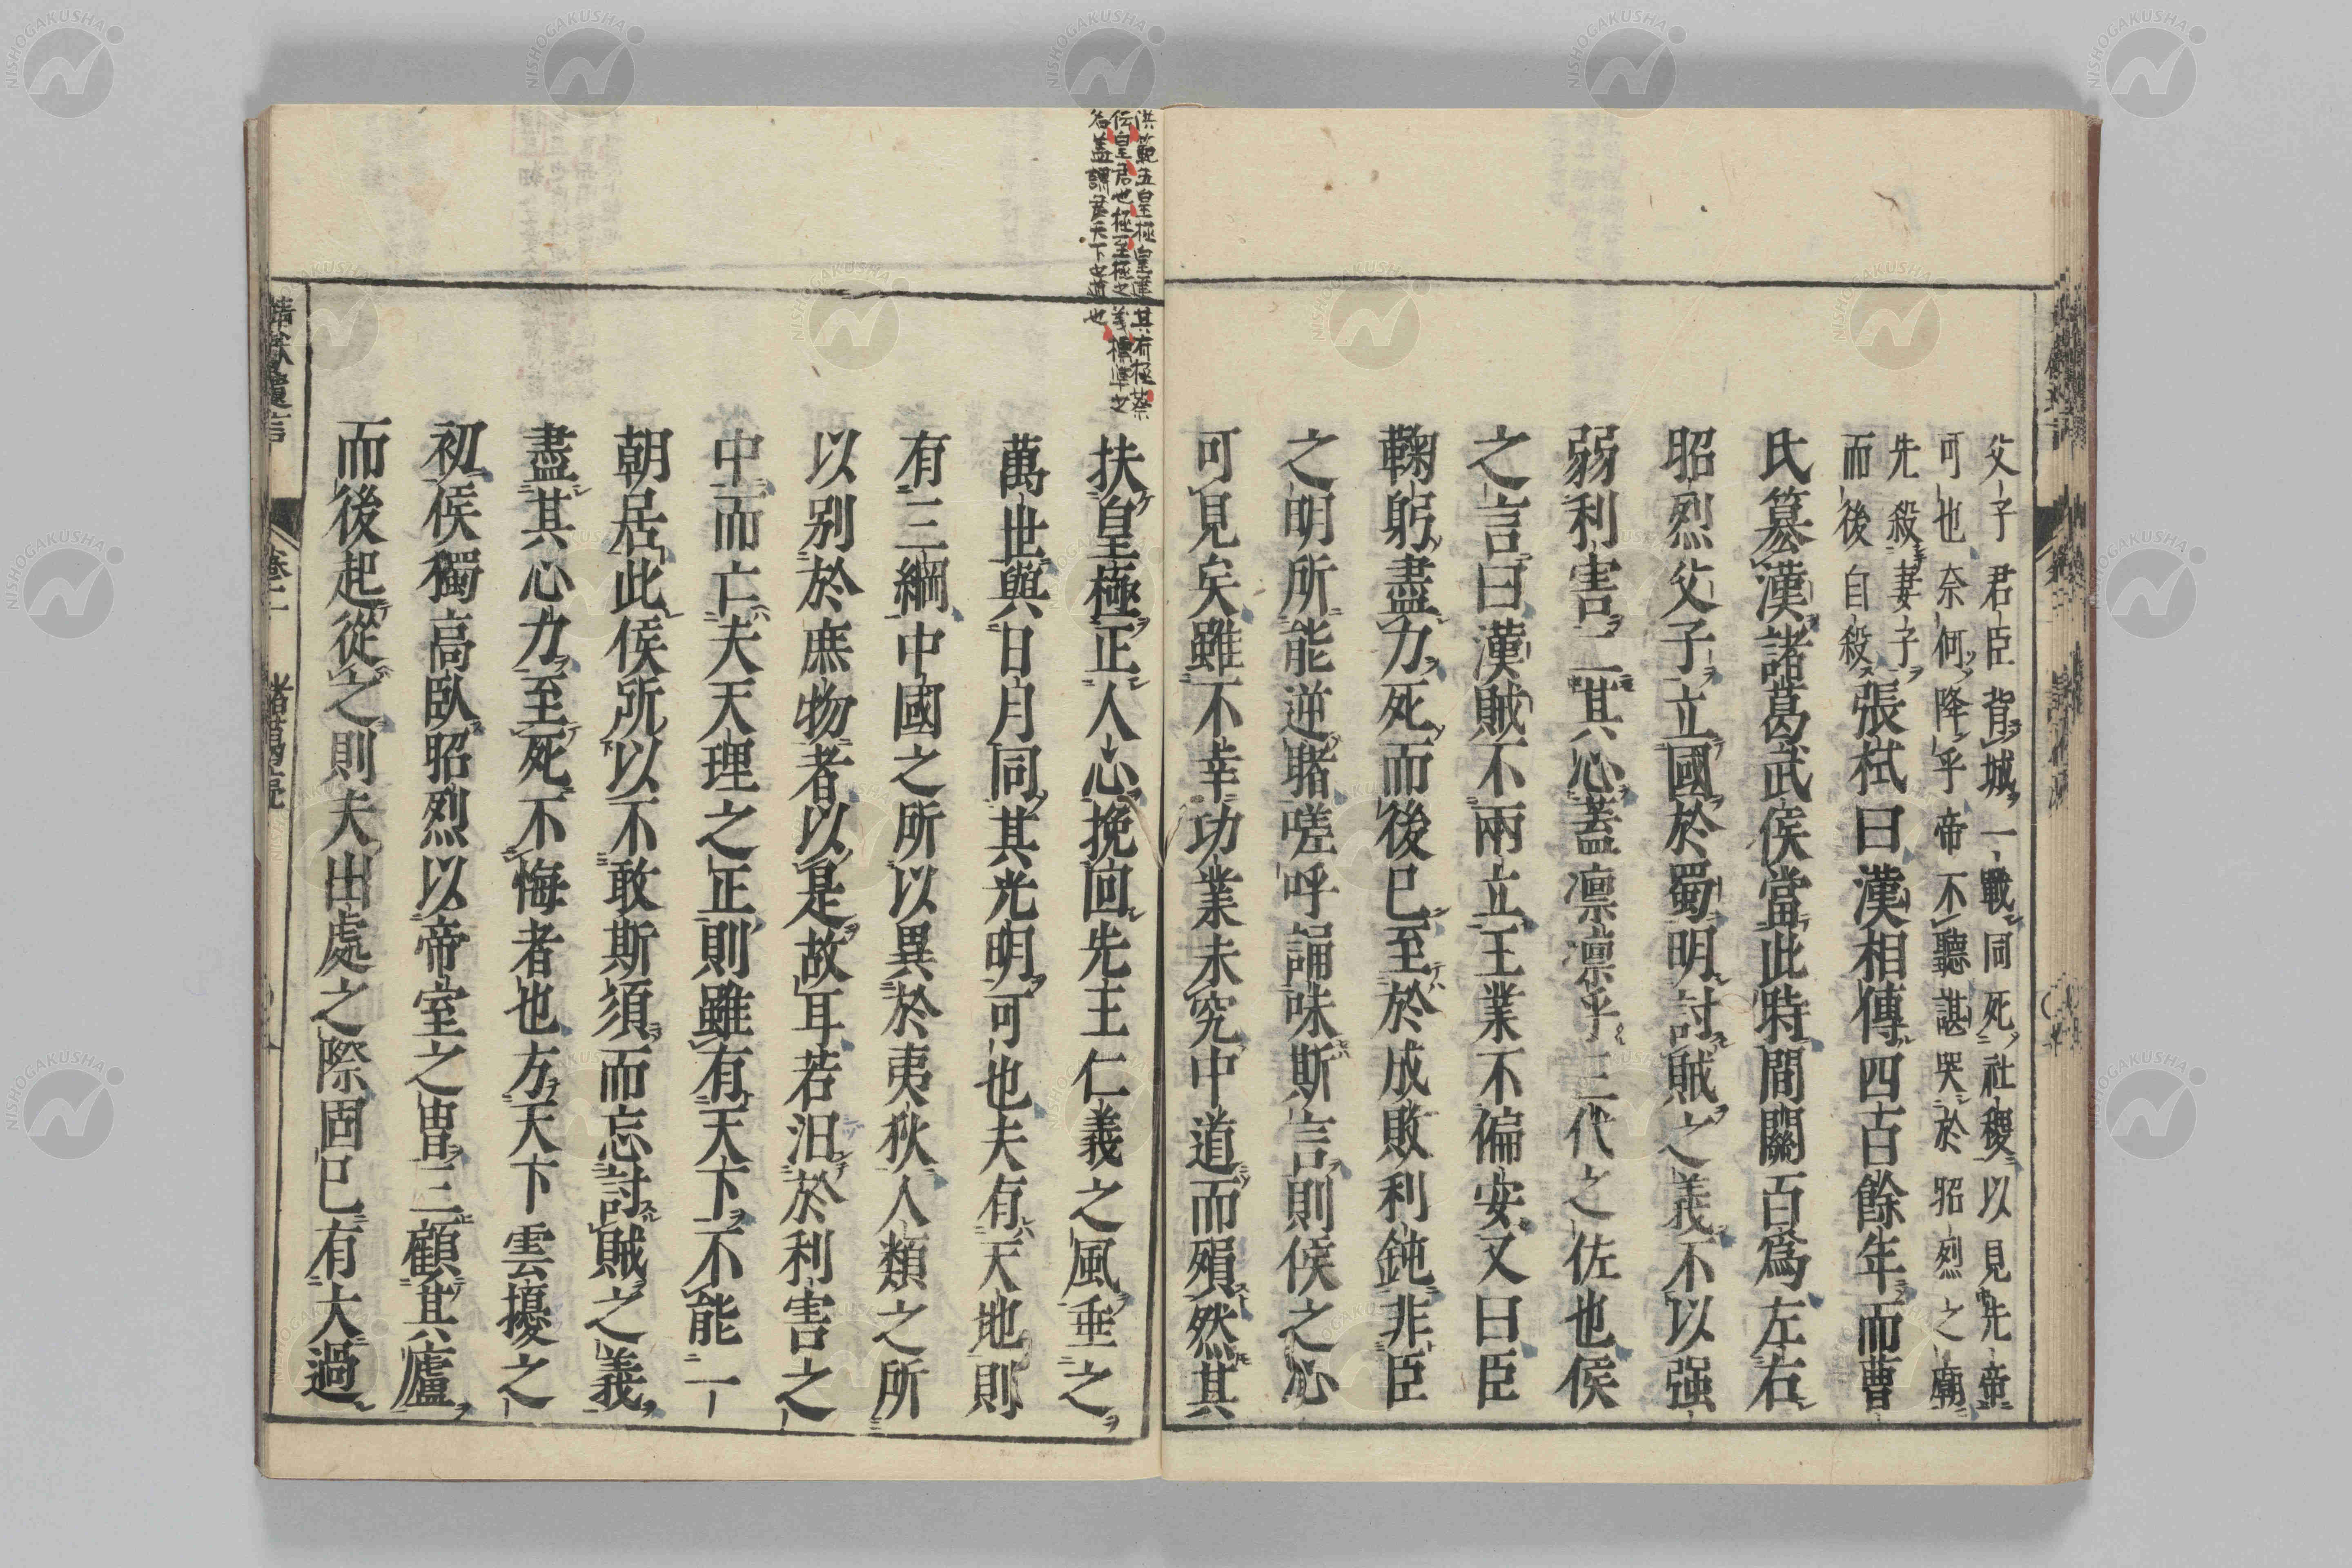 父子君臣背城一戰同死社稷以見先帝
可也奈何降乎帝不聽諶哭於昭烈之廟
先殺妻子
而後自殺
張栻曰漢相傳四百餘年而曹
氏簒漢諸葛武侯當此時間關百爲左右
昭烈父子立國於蜀明討賊之義不以强
弱利害二其心蓋凛凛乎三代之佐也侯
之言曰漢賊不兩立王業不偏安又曰臣
鞠躬盡力死而後已至於成敗利鈍非臣
之明所能逆睹嗟呼誦味斯言則侯之心
可見矣雖不幸功業未究中道而殞然其
洪範五皇極皇建其有極蔡
伝皇君也極至極之義標準之
名蓋謂君天下之道也
扶皇極正人心挽回先王仁義之風垂之
萬世與日月同其光明可也夫有天地則
有三綱中國之所以異於夷狄人類之所
以别於庶物者以是故耳若汨於利害之
中而亡夫天理之正則雖有天下不能一
朝居此侯所以不敢斯須而忘討賊之義
盡其心力至死不悔者也方天下雲擾之
初侯獨高臥昭烈以帝室之冑三顧其廬
而後起從之則夫出處之際固已有大過
靖獻遺言 卷二 諸葛亮